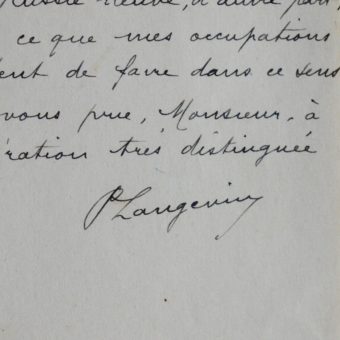 Russie Neuve, d'autre part,
ce que mes occupations
ent de faire dans ce sens
vous prie, Monsieur, à
ération très distinguée
PLangevin